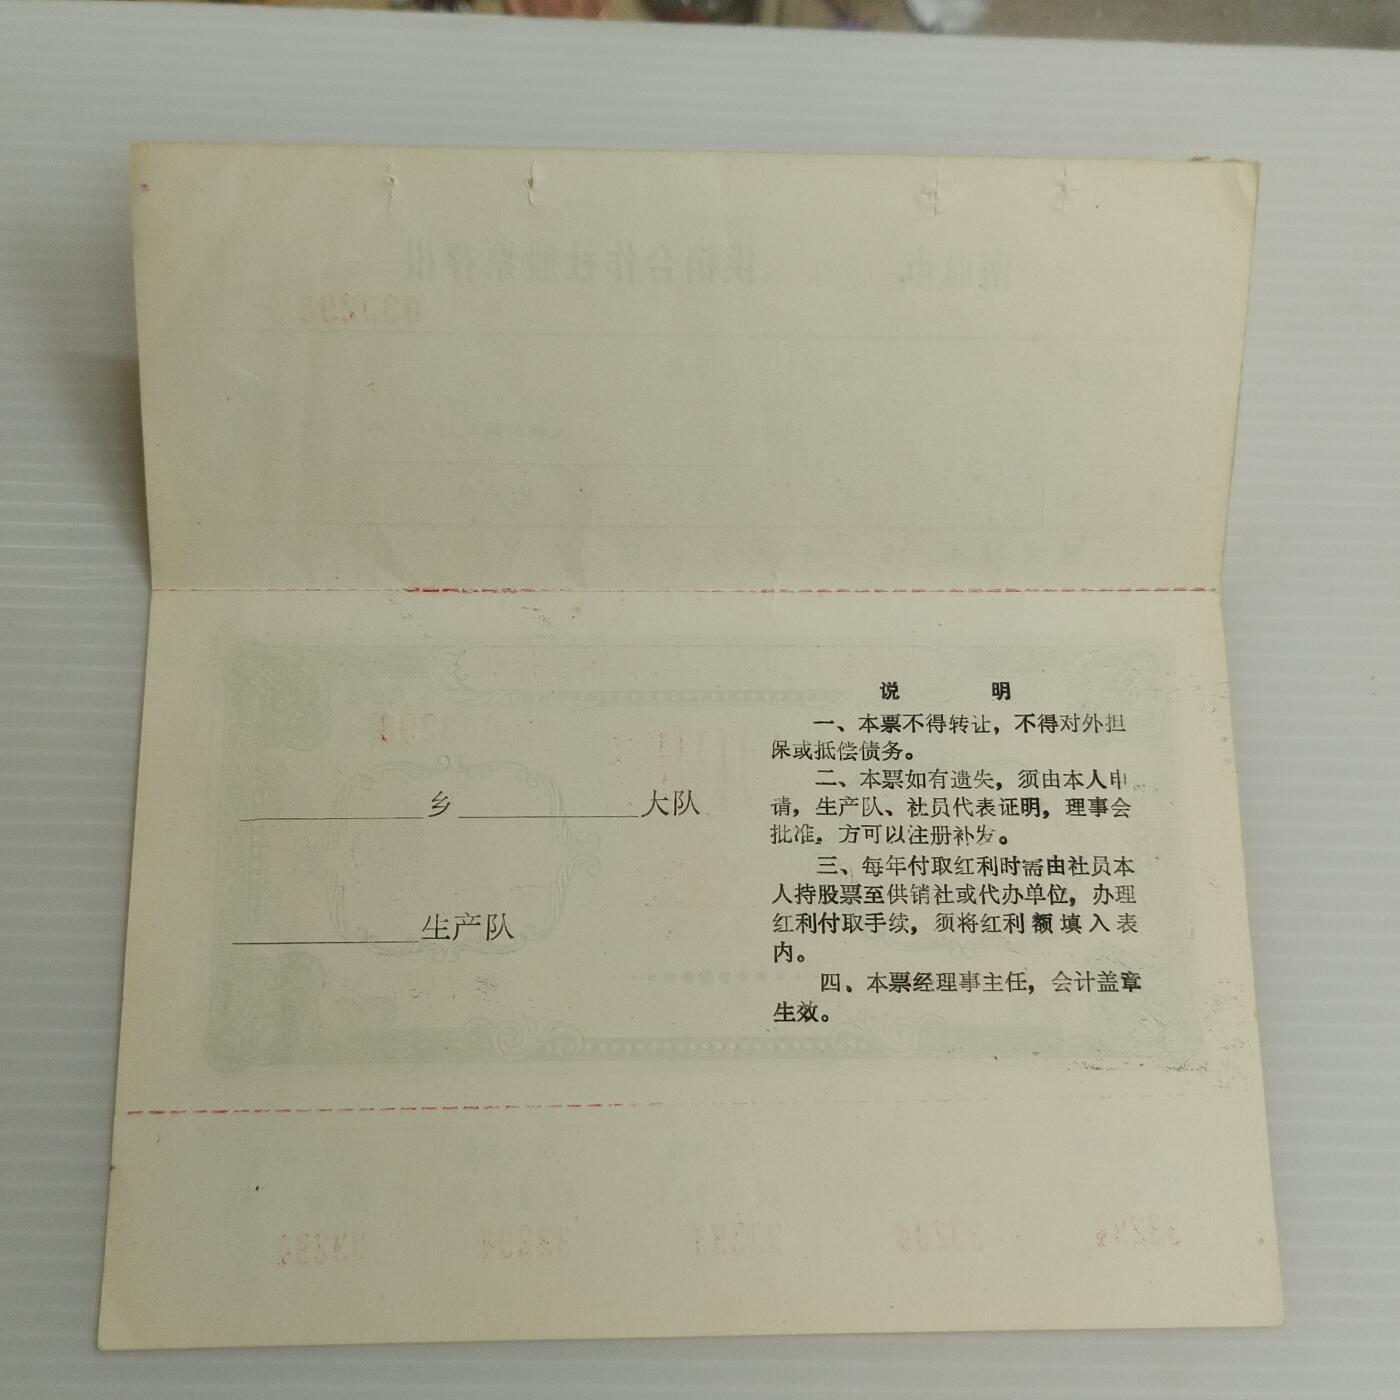 说 明
一、本票不得转让，不得对外担
保或抵偿债务。
二、本票如有遗失，须由本人申
请，生产队、社员代表证明，理事会
批准，方可以注册补发。
三、每年付取红利时需由社员本
人持股票至供销社或代办单位，办理
红利付取手续，须将红利额填入表
内。
四、本票经理事主任，会计盖章
生效。
乡 大队
生产队